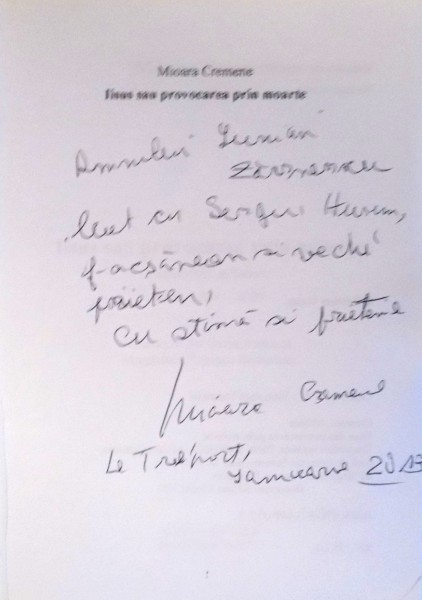 Mioara Cremene
Iisus sau provocarea prin moarte
Domnului Lucian
cu Sergiu Huzum,
și vechi
prieten,
cu stimă și prietenie
Mioara Cremene
Le Tréport,
ianuarie 2013